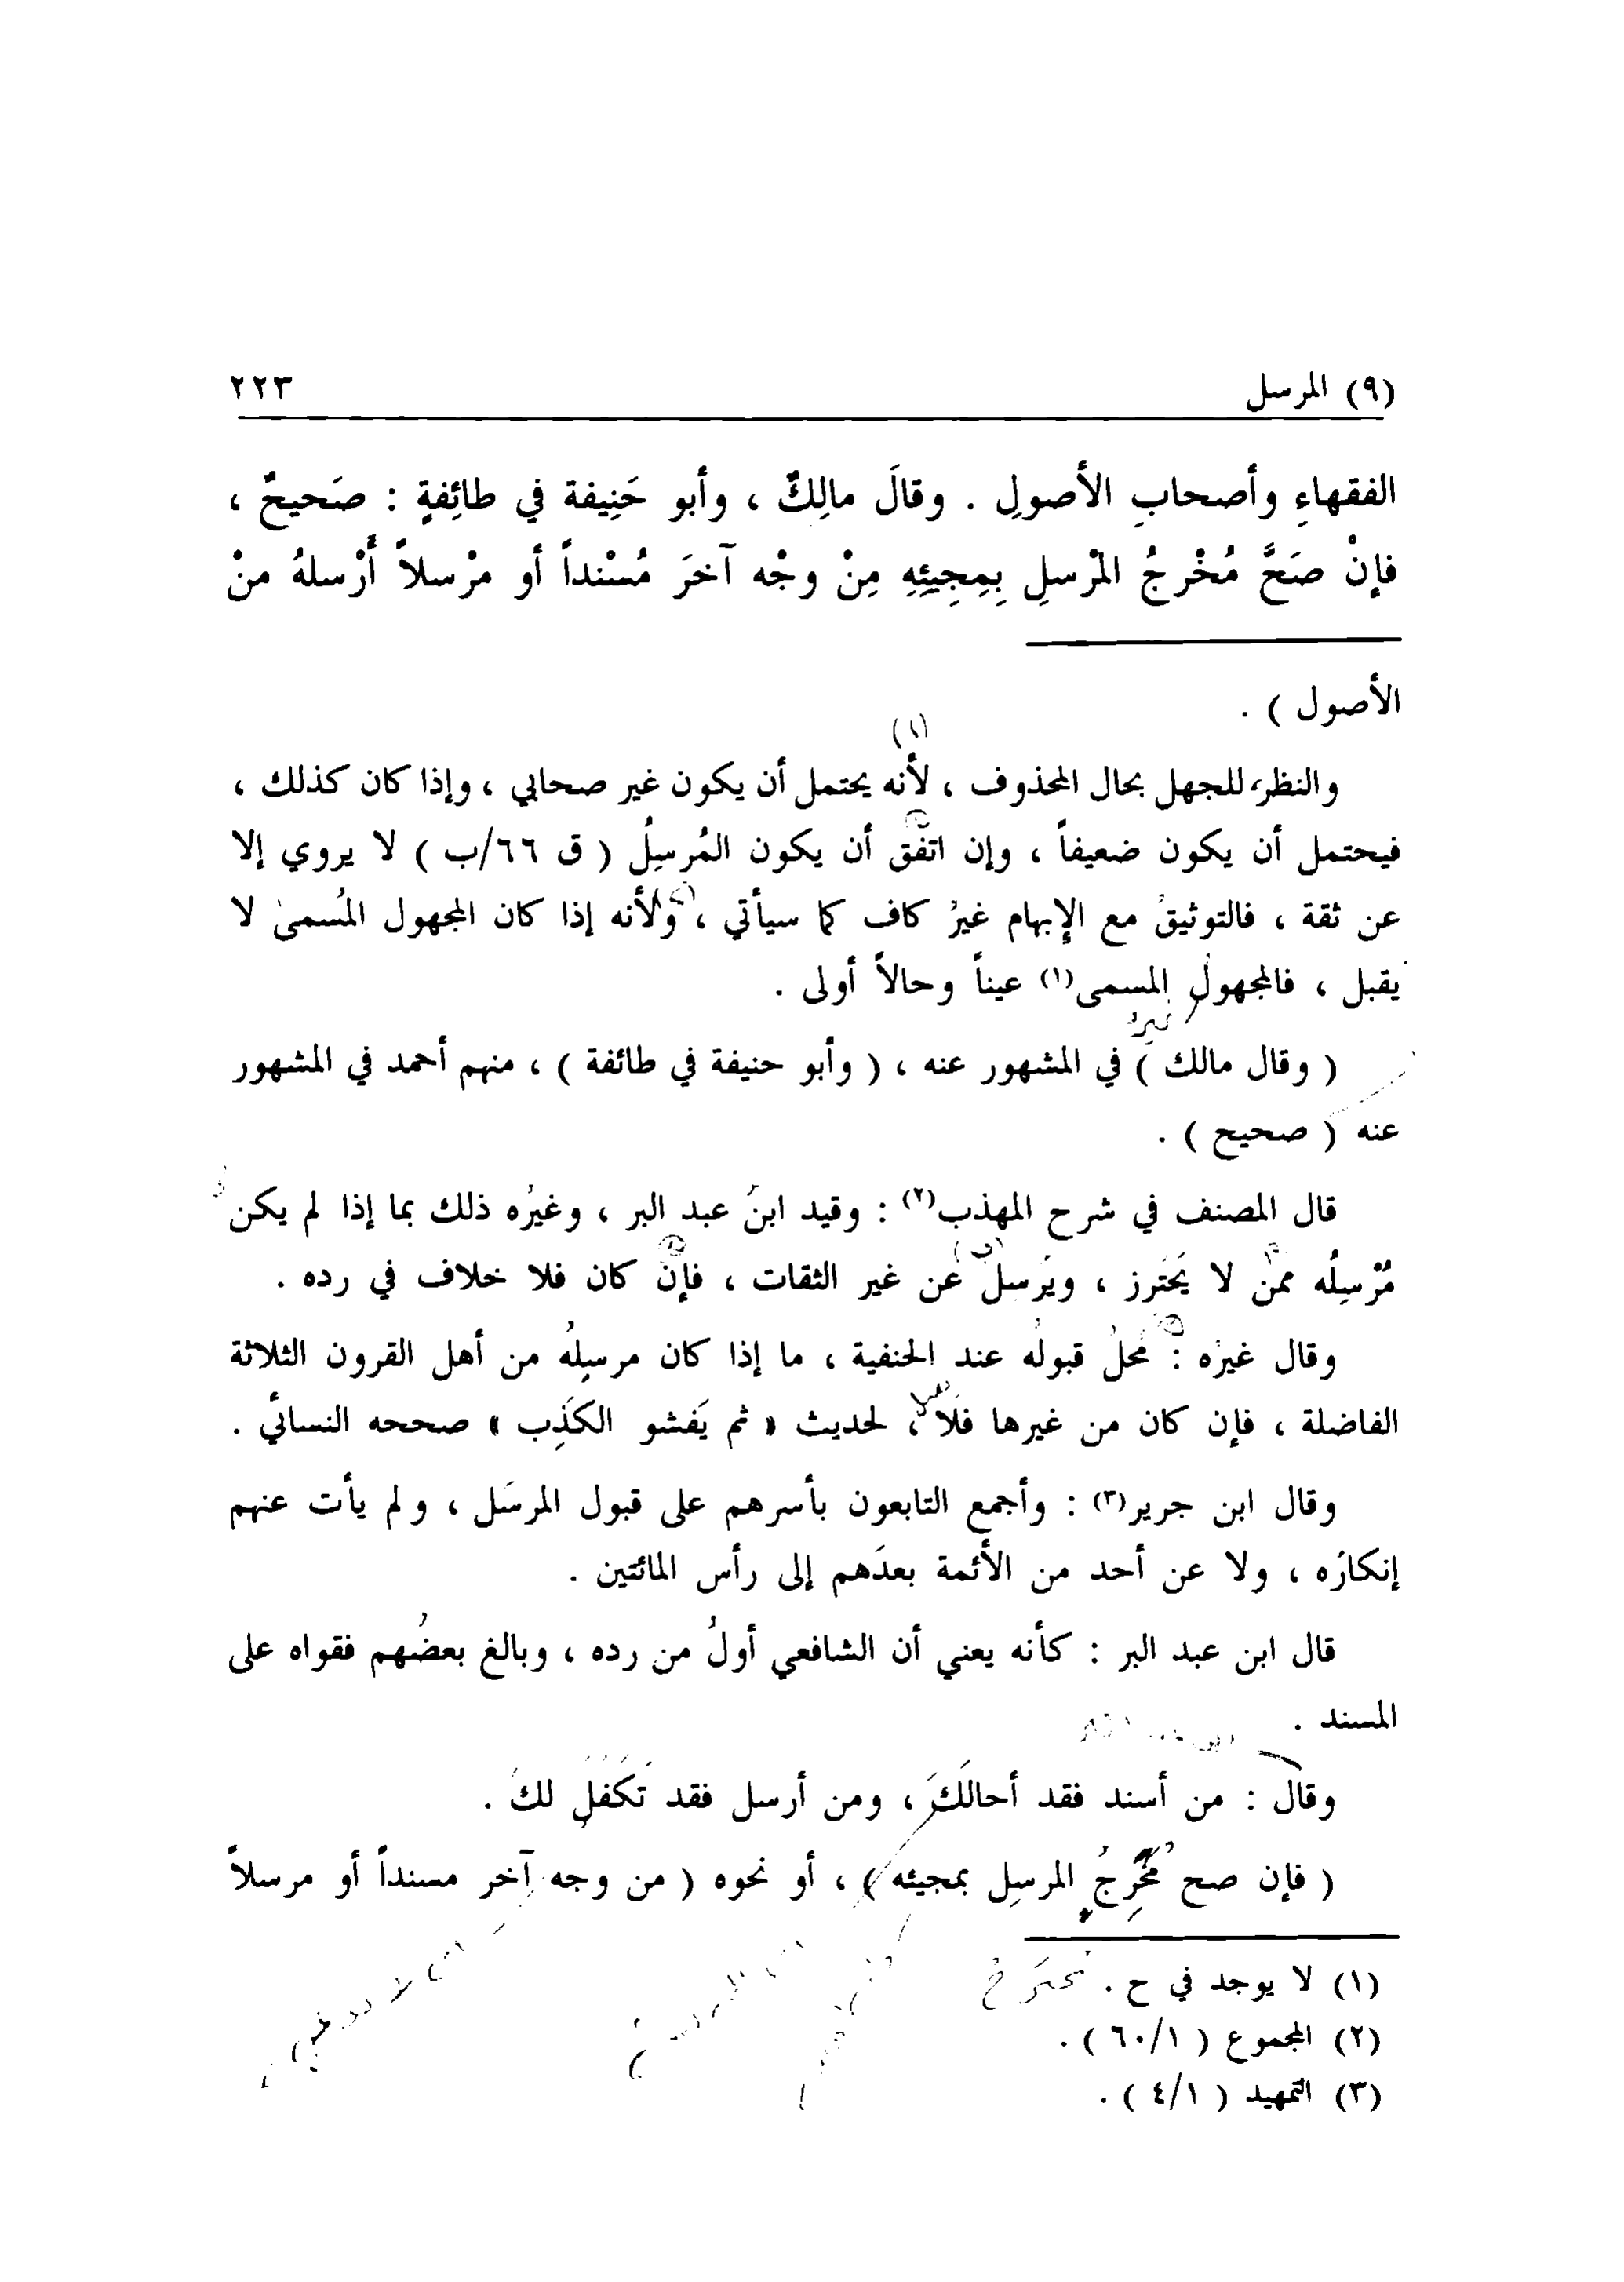 (٩) المرسل ٢٢٣
الفقهاءِ وأصحابِ الأصولِ . وقالَ مالِكٌ ، وأبو حَنِيفة في طائِفةٍ : صَحيحٌ ،
فإنْ صَحَّ مُخْرجُ المْرسلِ بِمِجِيئِهِ مِنْ وجْه آخرَ مُسْنداً أو مرْسلاً أَرْسلهُ منْ
الأصول ) .
والنظر، للجهل بحال المحذوف ، لأنه يحتمل أن يكون غير صحابي ، وإذا كان كذلك ،
فيحتمل أن يكون ضعيفاً ، وإن اتفق أن يكون المُرسِلُ ( ق ٦٦/ب ) لا يروي إلا
عن ثقة ، فالتوثيقُ مع الإبهام غيرُ كاف كما سيأتي ، ولأنه إذا كان المجهول المُسمىٰ لا
يقبل ، فالمجهول المسمى(١) عيناً وحالاً أولى .
( وقال مالك ) في المشهور عنه ، ( وأبو حنيفة في طائفة ) ، منهم أحمد في المشهور
عنه ( صحيح ) .
قال المصنف في شرح المهذب(٢) : وقيد ابنُ عبد البر ، وغيرُه ذلك بما إذا لم يكن
مُرْسِلُه ممن لا يَحْتَرز ، ويَرسلُ عن غير الثقات ، فإن كان فلا خلاف في رده .
وقال غيرُه : مَحلُّ قبوله عند الحنفية ، ما إذا كان مرسِلُه من أهل القرون الثلاثة
الفاضلة ، فإن كان من غيرها فلا ، لحديث « ثم يَفشو الكَذِب » صححه النسائي .
وقال ابن جرير(٣) : وأجمع التابعون بأسرهم على قبول المرسَل ، ولم يأت عنهم
إنكارُه ، ولا عن أحد من الأئمة بعدَهم إلى رأس المائتين .
قال ابن عبد البر : كأنه يعني أن الشافعي أولُ من رده ، وبالغ بعضُهم فقواه على
المسند .
وقال : من أسند فقد أحالَكَ ، ومن أرسل فقد تَكَفَّلَ لكَ .
( فإن صح مَخْرِجُ المرسِل بمجيئه ) ، أو نحوه ( من وجه آخر مسنداً أو مرسلاً
(١) لا يوجد في ح .
(٢) المجموع ( ٦٠/١ ) .
(٣) التمهيد ( ٤/١ ) .